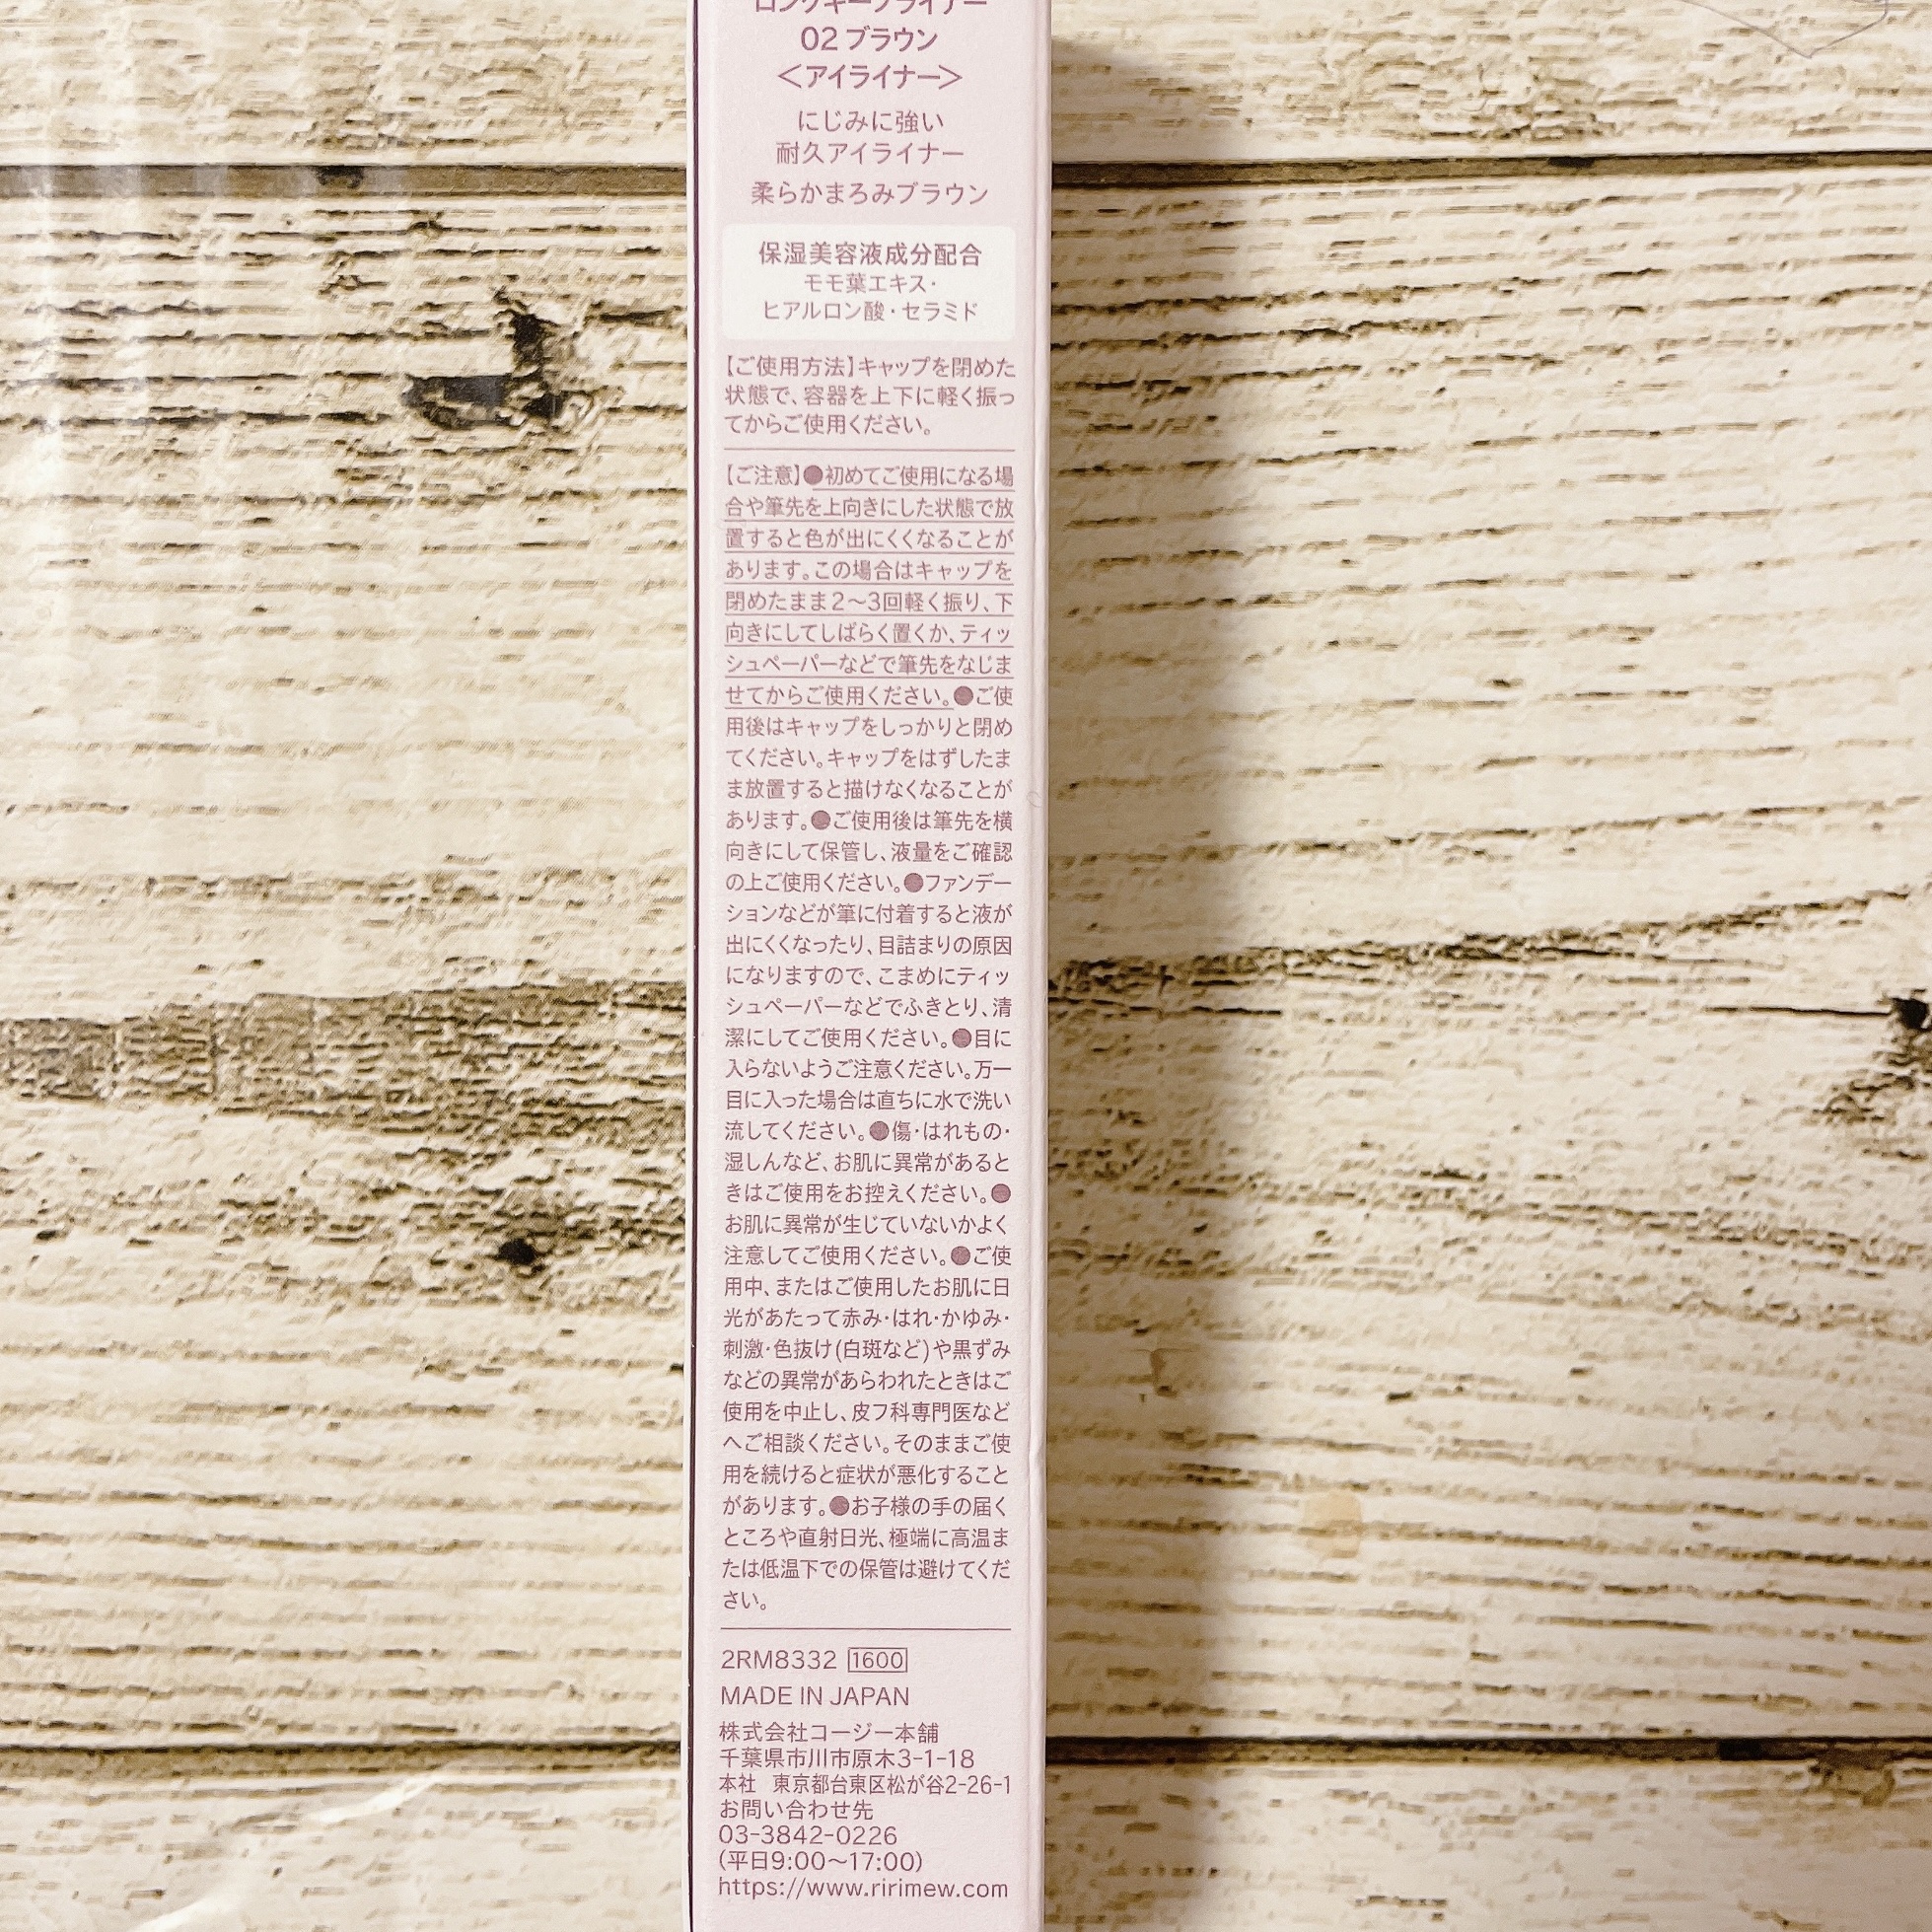 ロングキープライナー
02 ブラウン
＜アイライナー＞
にじみに強い
耐久アイライナー
柔らかまろみブラウン
保湿美容液成分配合
モモ葉エキス・
ヒアルロン酸・セラミド
【ご使用方法】キャップを閉めた
状態で、容器を上下に軽く振っ
てからご使用ください。
【ご注意】●初めてご使用になる場
合や筆先を上向きにした状態で放
置すると色が出にくくなることが
あります。この場合はキャップを
閉めたまま2〜3回軽く振り、下
向きにしてしばらく置くか、ティッ
シュペーパーなどで筆先をなじま
せてからご使用ください。●ご使
用後はキャップをしっかりと閉め
てください。キャップをはずしたま
ま放置すると描けなくなることが
あります。●ご使用後は筆先を横
向きにして保管し、液量をご確認
の上ご使用ください。●ファンデー
ションなどが筆に付着すると液が
出にくくなったり、目詰まりの原因
になりますので、こまめにティッ
シュペーパーなどでふきとり、清
潔にしてご使用ください。●目に
入らないようご注意ください。万一
目に入った場合は直ちに水で洗い
流してください。●傷・はれもの・
湿しんなど、お肌に異常があると
きはご使用をお控えください。●
お肌に異常が生じていないかよく
注意してご使用ください。●ご使
用中、またはご使用したお肌に日
光があたって赤み・はれ・かゆみ・
刺激・色抜け(白斑など)や黒ずみ
などの異常があらわれたときはご
使用を中止し、皮フ科専門医など
へご相談ください。そのままご使
用を続けると症状が悪化すること
があります。●お子様の手の届く
ところや直射日光、極端に高温ま
たは低温下での保管は避けてくだ
さい。
2RM8332 1600
MADE IN JAPAN
株式会社コージー本舗
千葉県市川市原木3-1-18
本社 東京都台東区松が谷2-26-1
お問い合わせ先
03-3842-0226
(平日9:00〜17:00)
https://www.ririmew.com